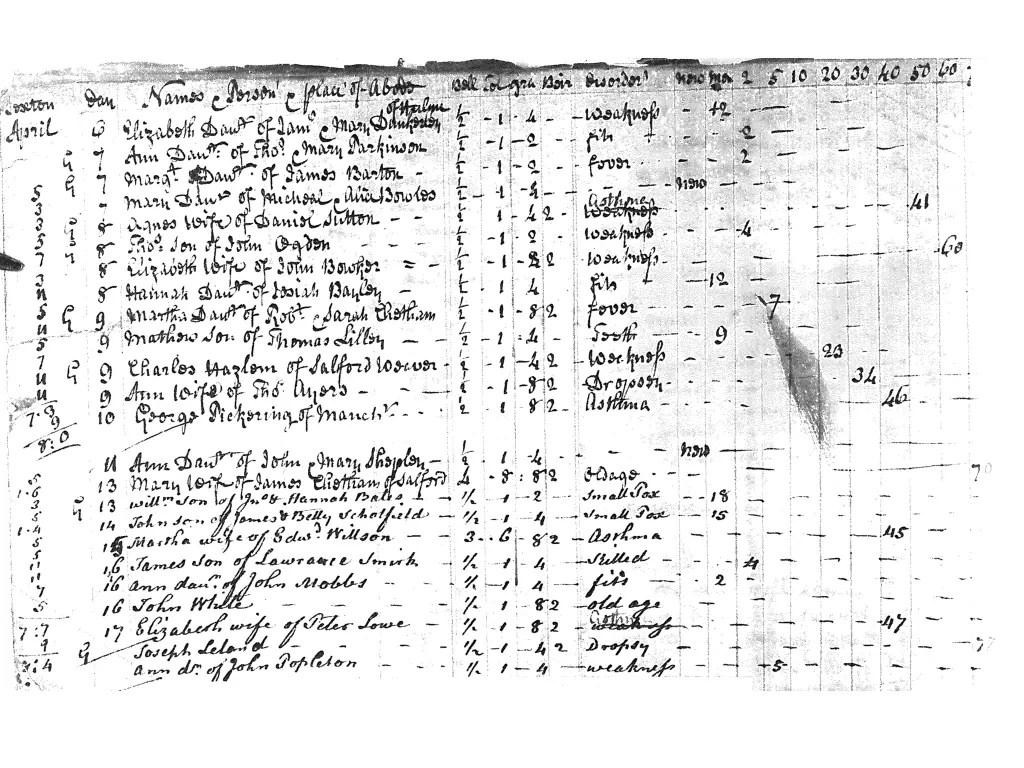 Sexton day Names & Person & place of Abode Bell Tol gra Beir disorder new mon 2 5 10 20 30 40 50 60 7
of Hulm
April 6 Elizabeth Dautr of Jams & Mary Dankerley ½ - 1 - 4 - weakness - 12
G 7 Ann Dautr of Thos & Mary Parkinson ½ - 1 - 2 - fits - - 2
G 7 Margt Dautr of James Barton ½ - 1 - 2 - fever - - 2
5 - Mary Dautr of Micheal & Alice Bowles ½ - 1 - new
3 G 8 Agnes wife of Daniel Sutton - - ½ - 1 - 4 2 - Asthma weakness 41
5 8 Thos son of John Ogden ½ - 1 - 2 - weakness - 4
7 8 Elizabeth wife of John Bowker = - ½ - 1 - 8 2 weakness 60
3 8 Hannah Dautr of Josiah Bayley ½ - 1 4 - fits - 12
5 G 9 Martha Dautr of Robt & Sarah Chetham ½ - 1 - 8 2 fever 7
9 Mathew son of Thomas Lilley - ½ - 1 - 4 - Teeth - 9
7 G 9 Charles Hazlem of Salford Weaver - ½ - 1 - 4 2 - Weekness 23
9 Ann wife of Thos Ayers ½ - 1 - 8 2 - Dropsey 34
7:3 10 George Pickering of Manchr ½ - 1 - 8 2 Asthma 46
9
8:0
11 Ann Dautr of John & Mary Shepley - ½ - 1 - 4 - new
5 13 Mary wife of James Chetham of Salford 4 - 8 : 8 2 - Oldage 70
1:6 G 13 willm Son of Jno & Hannah Bates ½ - 1 - 2 - Small Pox - 18
5 14 John son of James & Betty Scholfield ½ - 1 - 4 - Small Pox - 15
1:4 15 Martha wife of Edwd Willson - 3 - 6 - 8 2 - Asthma 45
5 16 James son of Lawrance Smith - ½ - 1 - 4 - Killed 4
16 ann daur of John Mobbs - ½ - 1 - 4 - fits - 2
5 16 John While ½ - 1 - 8 2 - old age
7:7 17 Elizabeth wife of Peter Lowe - ½ - 1 - 8 2 - weakness 47
9 G Joseph Leland - ½ - 1 - 4 2 - Dropsy 77
8:4 ann dr of John Popleton - ½ - 1 - 4 - weakness 5